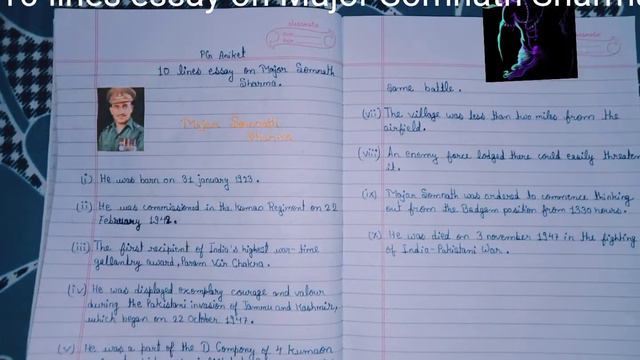 10 lines essay on Major Somnath Sharma
classmate
PG Aniket
10 lines essay on Major Somnath
Sharma.
Major Somnath
Sharma
(i) He was born on 31 january 1923.
(ii) He was commissioned in the Kumao Regiment on 22
February 1942.
(iii) The first recipient of India's highest war-time
gallandry award, Param Vir Chakra.
(iv) He was displayed exemplary courage and valour
during the Pakistani invasion of Jammu and Kashmir,
which began on 22 October 1947.
(v) He was a part of the D Company of 4 Kumaon
same battle.
(vii) The village was less than two miles from the
airfield.
(viii) An enemy force lodged there could easily threaten
it.
(ix) Major Somnath was ordered to commence thinking
out from the Badgam position from 1330 hours.
(x) He was died on 3 november 1947 in the fighting
of India-Pakistani War.